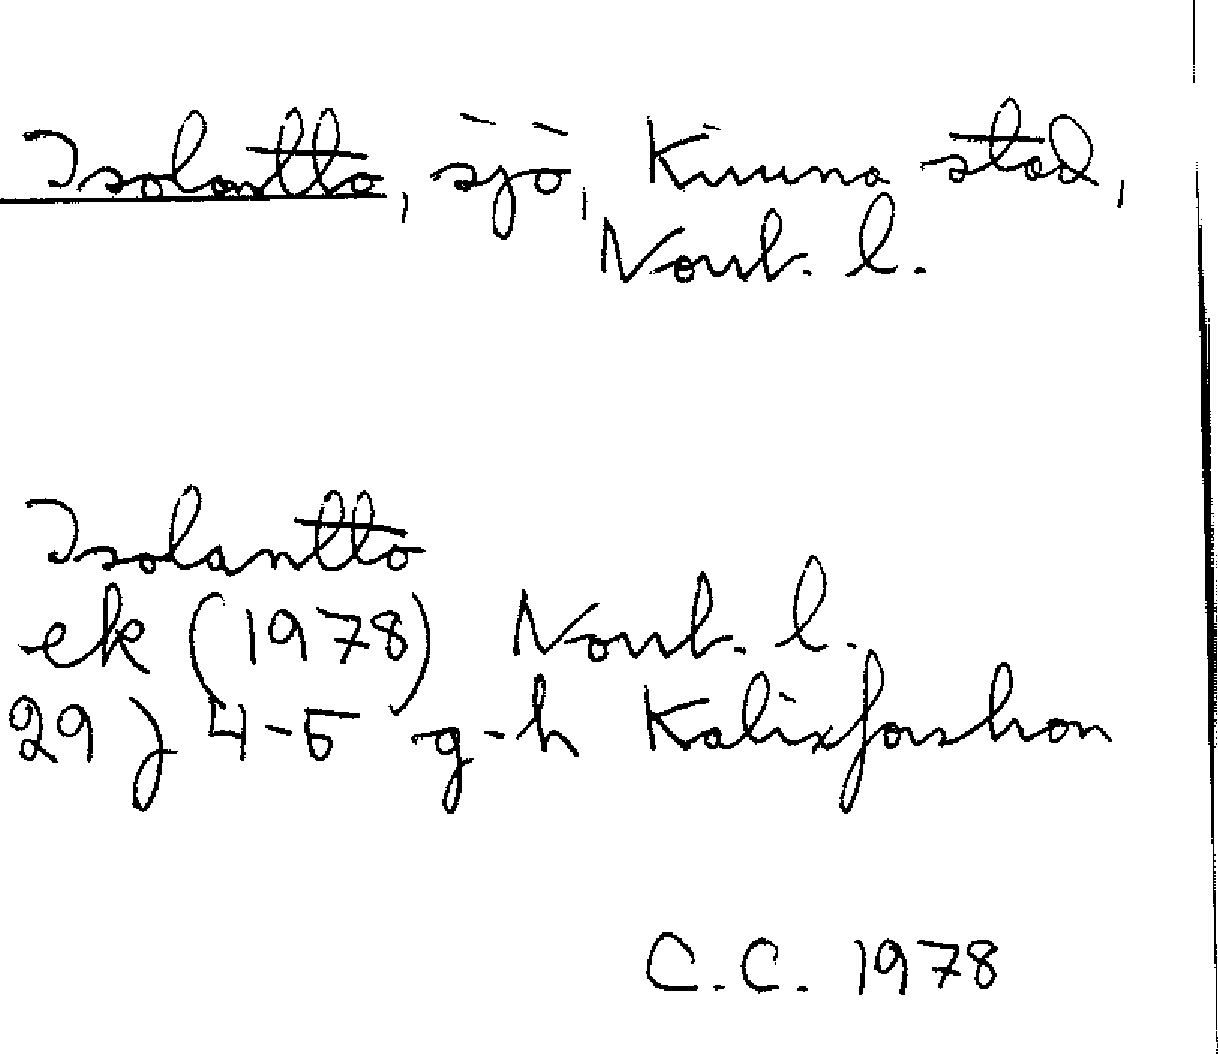 Isolantto, sjö, Kiruna stad,
Norrb. l.
Isolantto
ek (1978) Norrb. l.
29 J 4-5 g-h Kalixforsbron
C.C. 1978